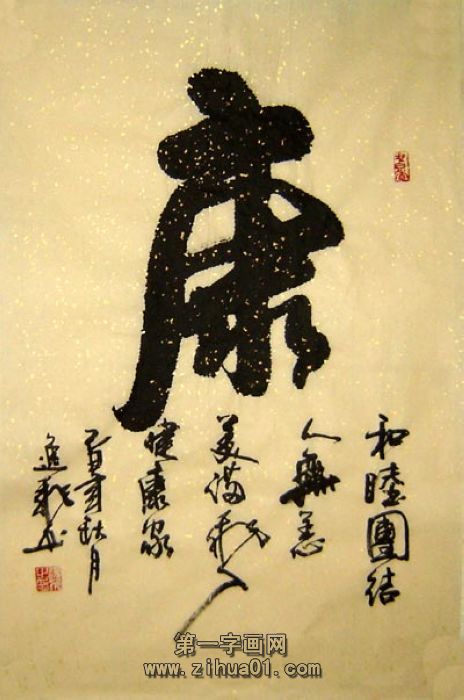 康
和睦團結
人無恙
美滿人
健康家
秋月
第一字画网
www.zihua01.com